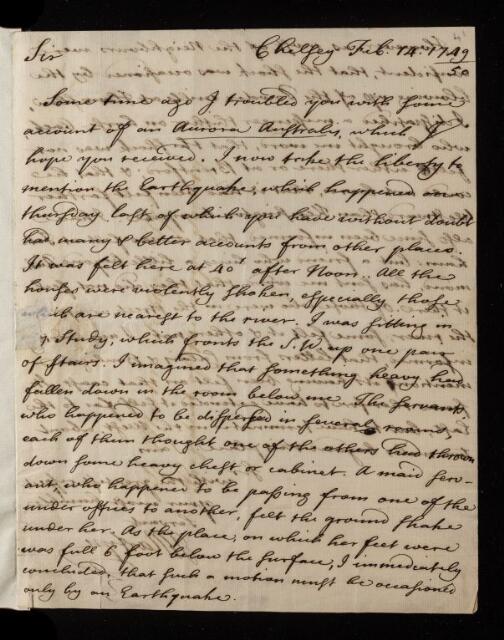 Sir Chelsey Feb. 14. 1749/50
Some time ago I troubled you with some
account of an Aurora Australis, which I
hope you received. I now take the liberty to
mention the Earthquake, which happened on
thursday last, of which you have without doubt
had many & better accounts from other places.
It was felt here at 40' after Noon. All the
houses were violently shaken, especially those
are nearest to the river. I was sitting in
Study, which fronts the S.W. up one pair
of stairs. I imagined that something heavy had
fallen down in the room below me. The servants,
who happened to be dispersed in several rooms,
each of them thought one of the others had thrown
down some heavy chest or cabinet. A maid ser-
ant, who happened to be passing from one of the
under offices to another, felt the ground shake
under her. As the place, on which her feet were
was full 6 foot below the surface, I immediately
concluded, that such a motion must be occasioned
only by an Earthquake.